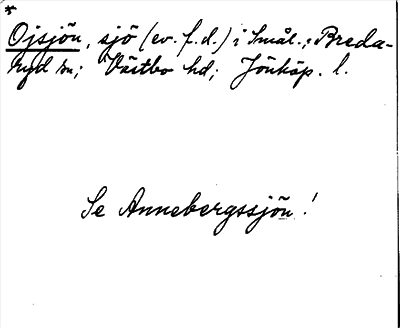 *
Ojsjön, sjö (ev. f.d.) i Smål.; Breda-
ryd sn; Västbo hd; Jönköp. l.
Se Annebergssjön!